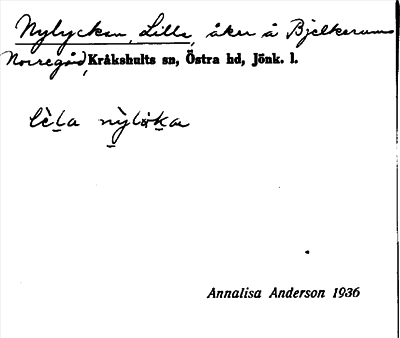 Nylyckan, Lilla, åker å Bjelkerums
Norregård, Kråkshults sn, Östra hd, Jönk. l.
lè̱la nỳlɩka
Annalisa Anderson 1936